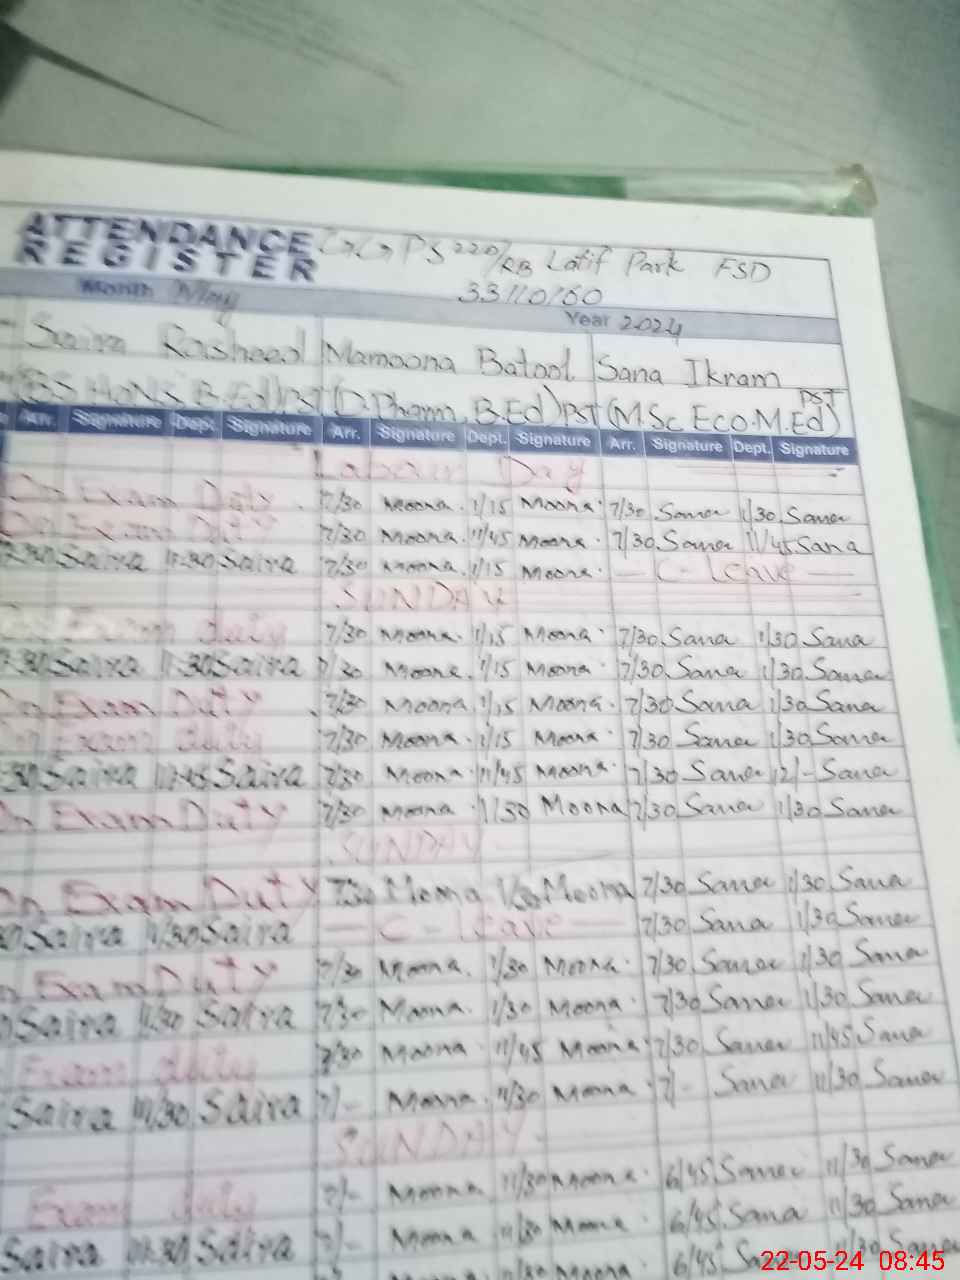 ATTENDANCE
REGISTER
GGPS 220/RB Latif Park FSD
33110160
Month May
Year 2024
Saira Rasheed Mamoona Batool Sana Ikram
(BS HONS B.Ed) PST (D.Pharm, B.Ed) PST (M.Sc Eco. M.Ed) PST
Arr. Signature Dept. Signature Arr. Signature Dept. Signature Arr. Signature Dept. Signature
Labour Day
On Exam Duty 7/30 Moona. 1/15 Moona. 7/30 Sana 1/30 Sana
On Exam Duty 7/30 Moona. 11/45 Moona. 7/30 Sana 11/45 Sana
Saira 11:30 Saira 7/30 Moona. 1/15 Moona. — C - Leave —
SUNDAY
Exam duty 7/30 Moona. 1/15 Moona. 7/30 Sana 1/30 Sana
Saira 11:30 Saira 7/30 Moona. 1/15 Moona. 7/30 Sana 1/30 Sana
On Exam Duty 7/30 Moona. 1/15 Moona. 7/30 Sana 1/30 Sana
On Exam duty 7/30 Moona. 1/15 Moona. 7/30 Sana 1/30 Sana
Saira 11:45 Saira 7/30 Moona. 11/45 Moona. 7/30 Sana 12/- Sana
On Exam Duty 7/30 Moona. 1/30 Moona 7/30 Sana 1/30 Sana
SUNDAY
On Exam Duty 7/30 Moona. 1/30 Moona 7/30 Sana 1/30 Sana
Saira 11/30 Saira — C - leave — 7/30 Sana 1/30 Sana
On Exam Duty 7/30 Moona. 1/30 Moona. 7/30 Sana 1/30 Sana
Saira 11:30 Saira 7/30 Moona. 1/30 Moona. 7/30 Sana 1/30 Sana
Exam duty 7/30 Moona 11/45 Moona. 7/30 Sana 11/45 Sana
Saira 11/30 Saira 7/- Moona. 11/30 Moona. 7/- Sana 11/30 Sana
SUNDAY
Exam duty 7/- Moona 11/30 Moona. 6/45 Sana 11/30 Sana
Saira 11:30 Saira 7/- Moona 11/30 Moona. 6/45 Sana 11/30 Sana
11/30 Moona. 6/45 11/30 Sana
22-05-24 08:45